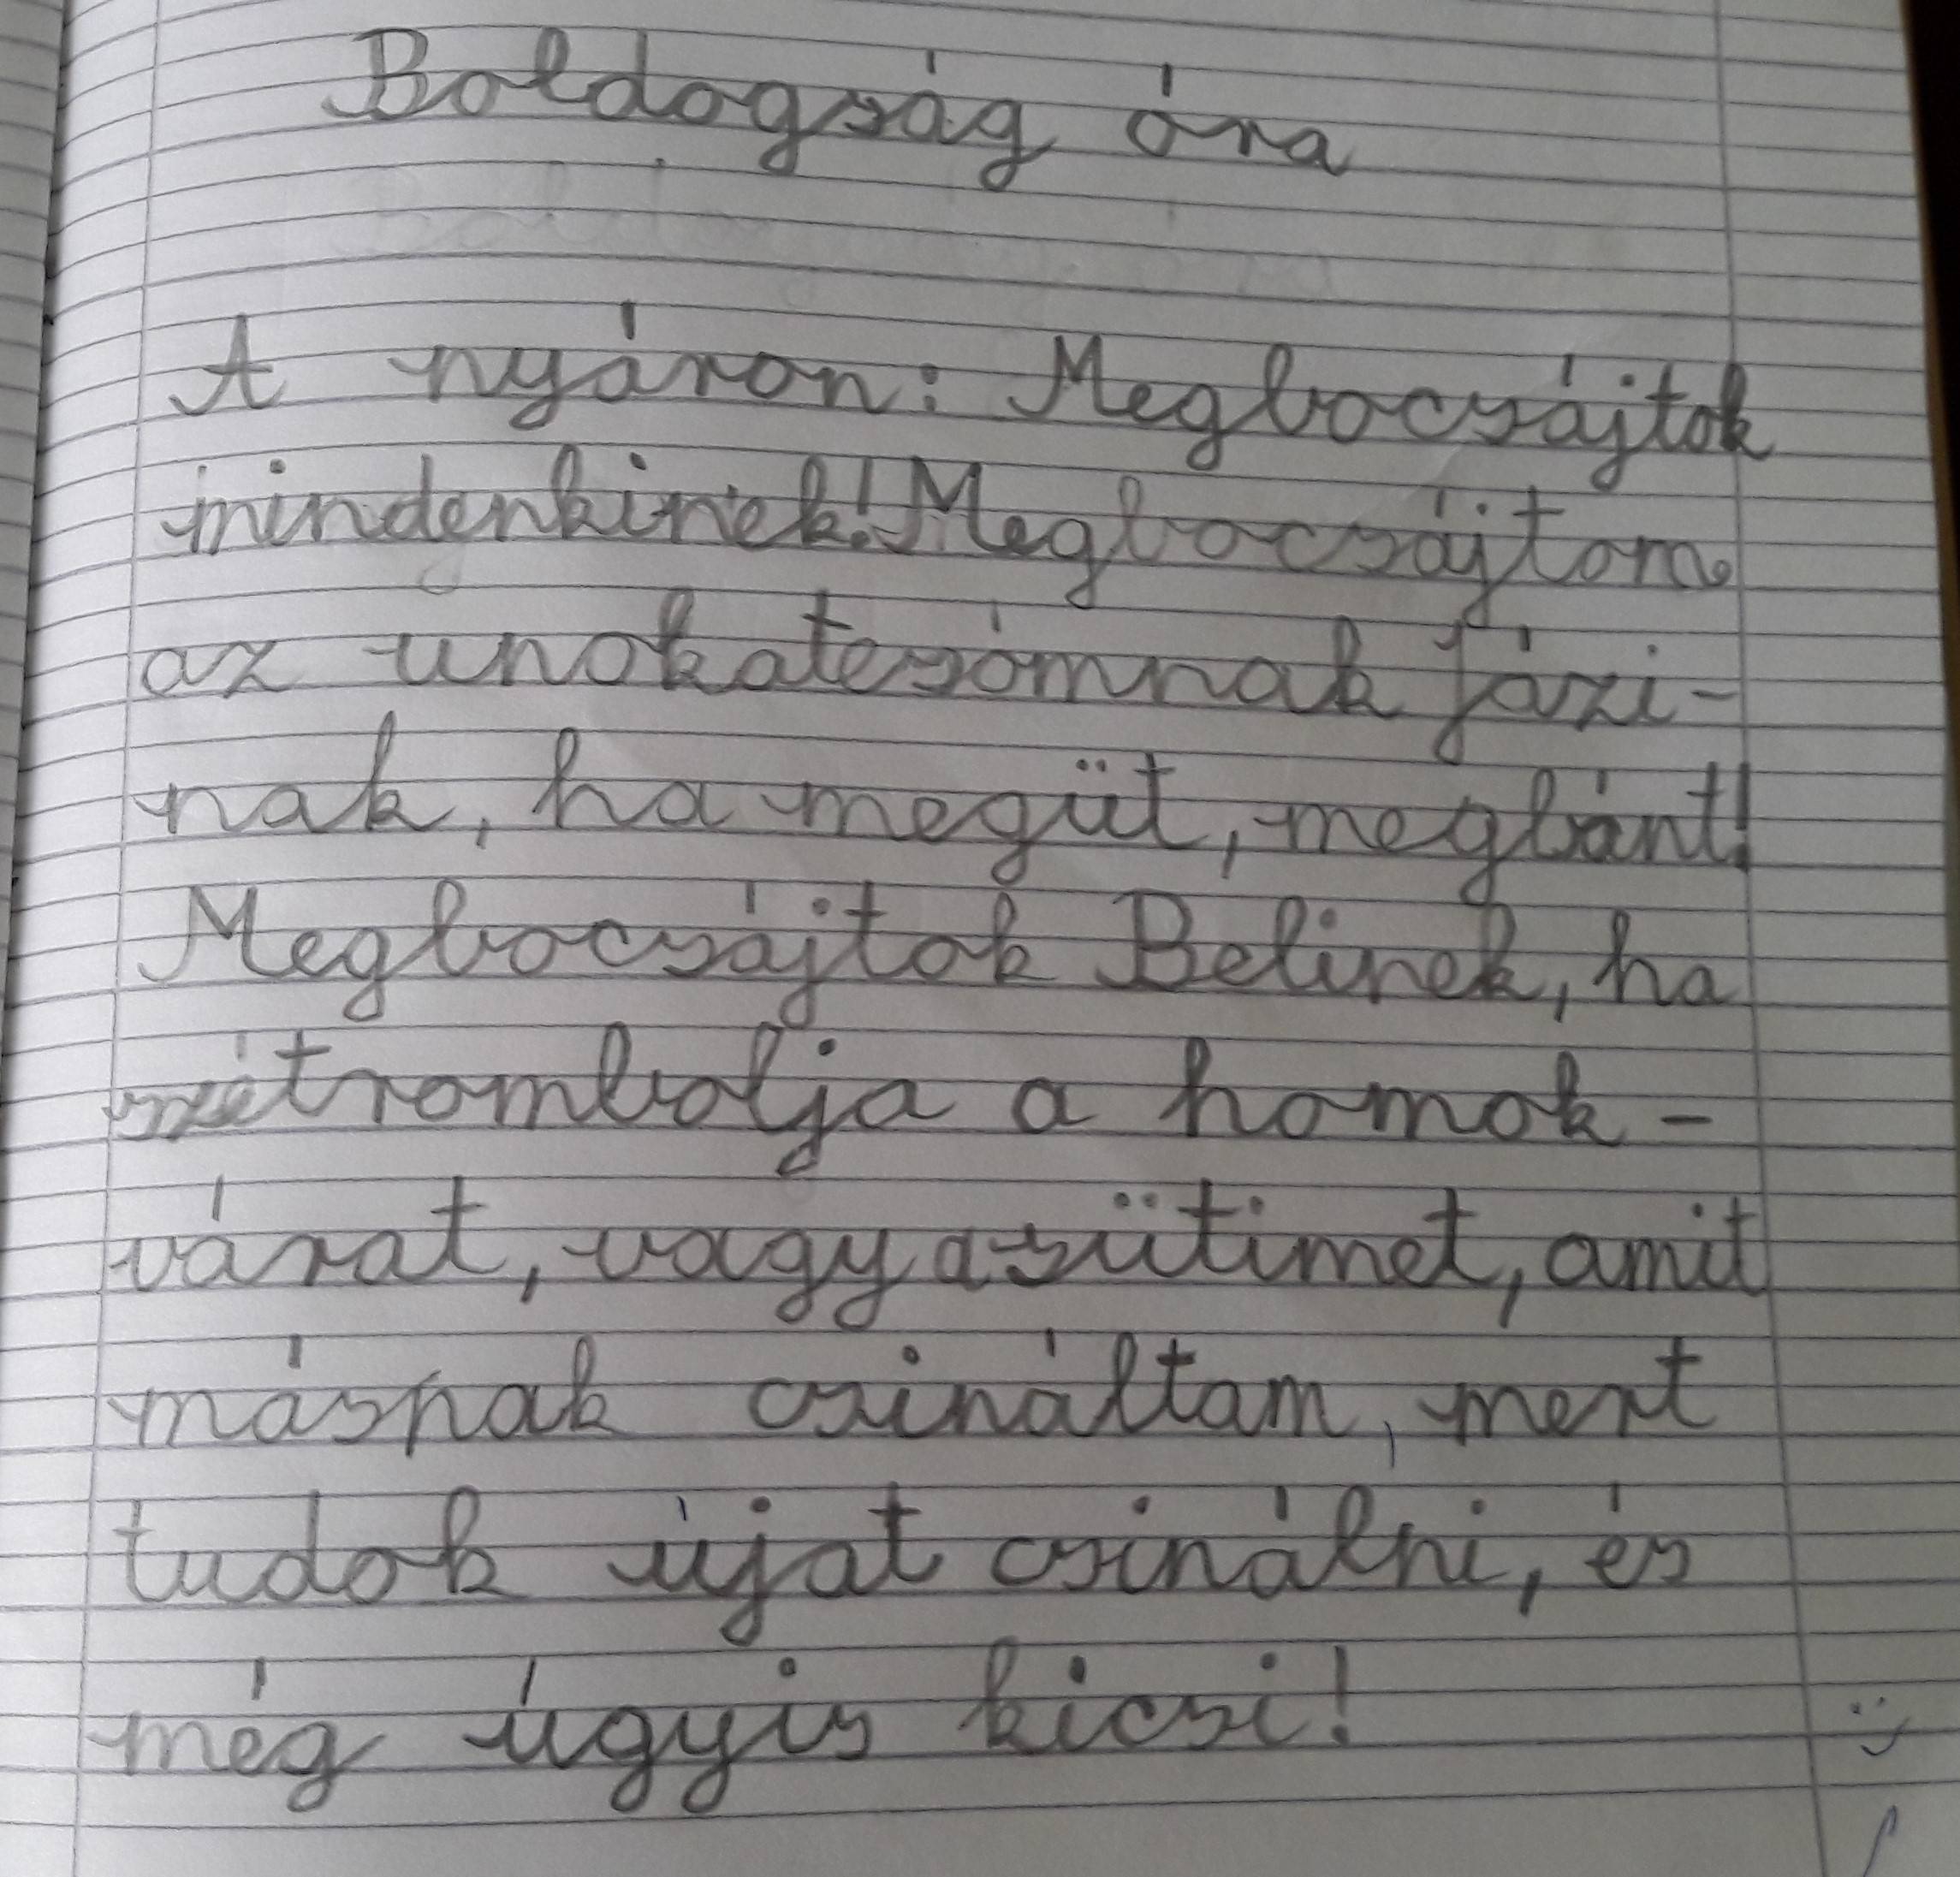 Boldogság óra
A nyáron: Megbocsájtok
mindenkinek! Megbocsájtom
az unokatesómnak Józi-
nak, ha megüt, megbánt!
Megbocsájtok Belinek, ha
szétrombolja a homok-
várat, vagy a sütimet, amit
másnak csináltam, mert
tudok újat csinálni, és
még úgyis kicsi!
:)